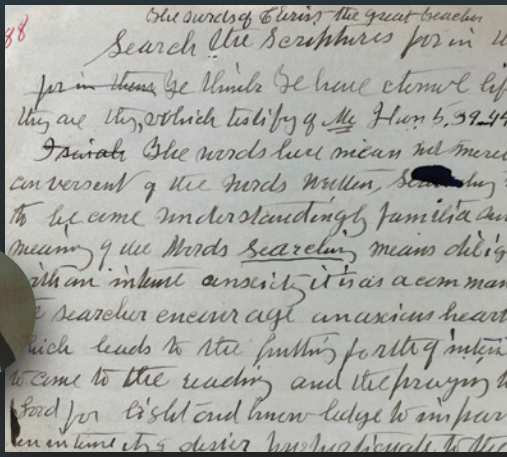 The words of Christ the great teacher
88
Search the Scriptures for in
for in them Ye think Ye have eternal lif
they are they, which testify of Me John 5, 39
The words here mean not mere
conversent of the words written,
to become understandingly familia
meaning of the Words searching means dilig
with an intense anxiety it is as a comman
searcher encourage an anxious heart
which leads to the putting forth of
to come to the reading and the praying
Lord for light and knowledge to impar
an intensity desier